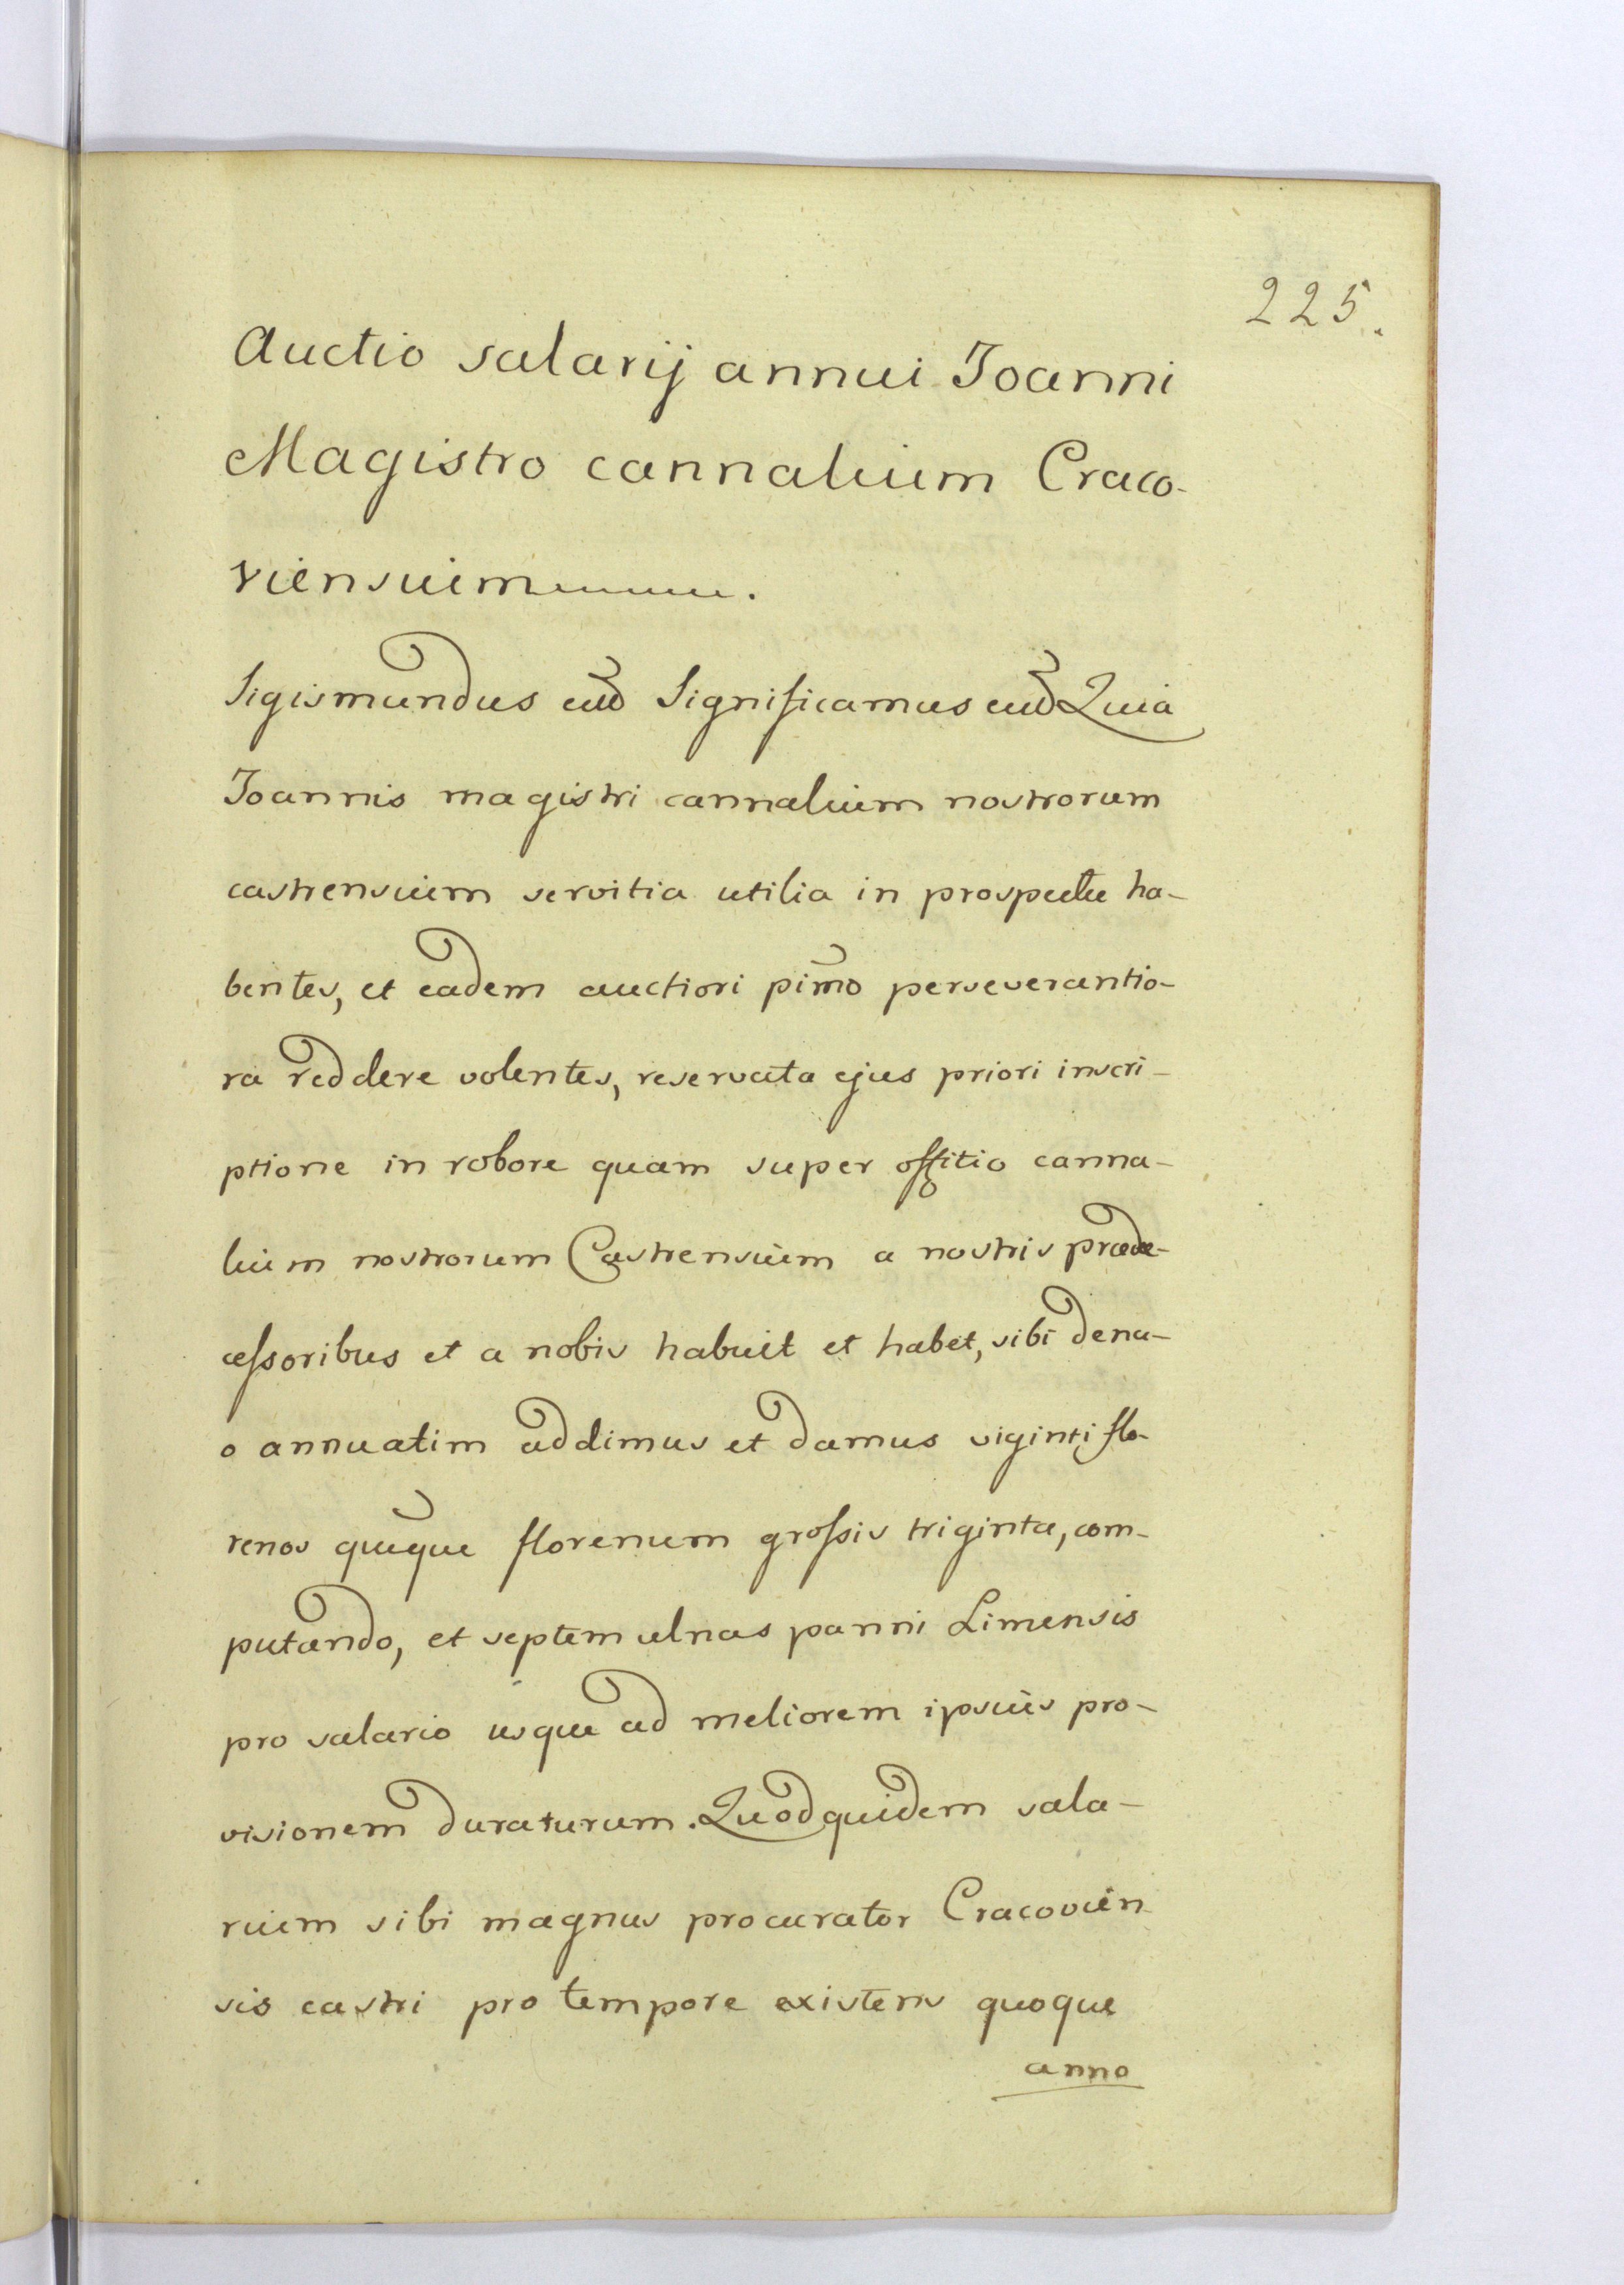 225.
Auctio salarij annui Joanni
Magistro cannalium Craco-
viensium.
Sigismundus eud Significamus eud Quia
Joannis magistri cannalium nostrorum
castrensium servitia utilia in prospectu ha-
bentes, et eadem auctiori pimo perseverantio-
ra reddere volentes, reservata ejus priori inscri-
ptione in robore quam super offitio canna-
lium nostrorum Castrensium a nostris præde-
cessoribus et a nobis habuit et habet, sibi denu-
o annuatim addimus et damus viginti flo-
renos queque florenum grossis triginta, com-
putando, et septem ulnas panni Limensis
pro salario usque ad meliorem ipsius pro-
visionem duraturum. Quodquidem sala-
rium sibi magnus procurator Cracovien
sis castri pro tempore existens quoque
anno